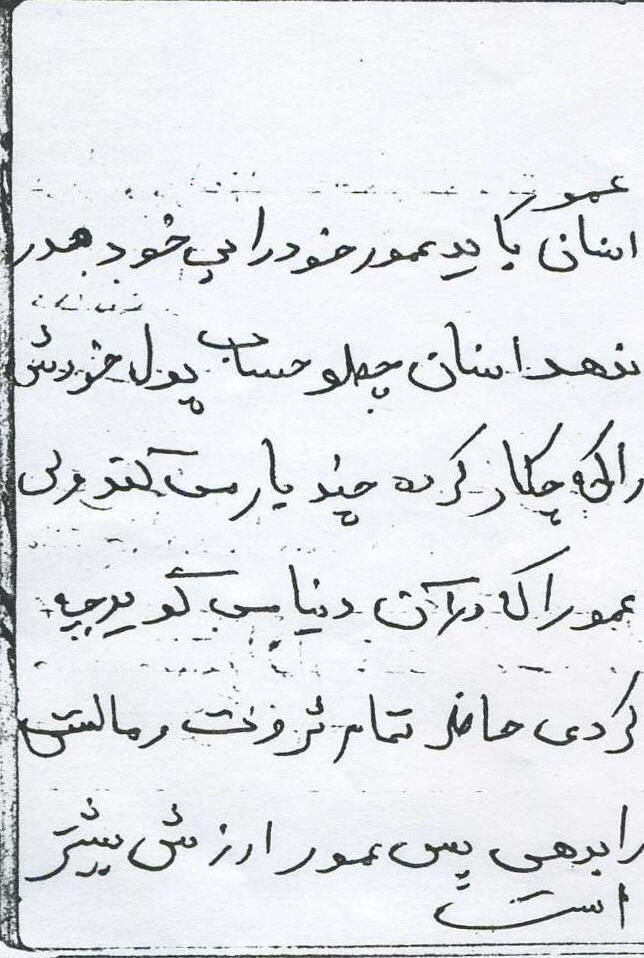 عمور
انسان باید عمور خود را بی خود هدر
ندهد انسان چطو حساب پول خودش
را که چکار کرده چند بار می کند ولی
عمور را که در آن دنیا می گوید چه
کردی حاضر تمام ثروت و مالش
را بدهی پس عمور ارزش بیشتر
است